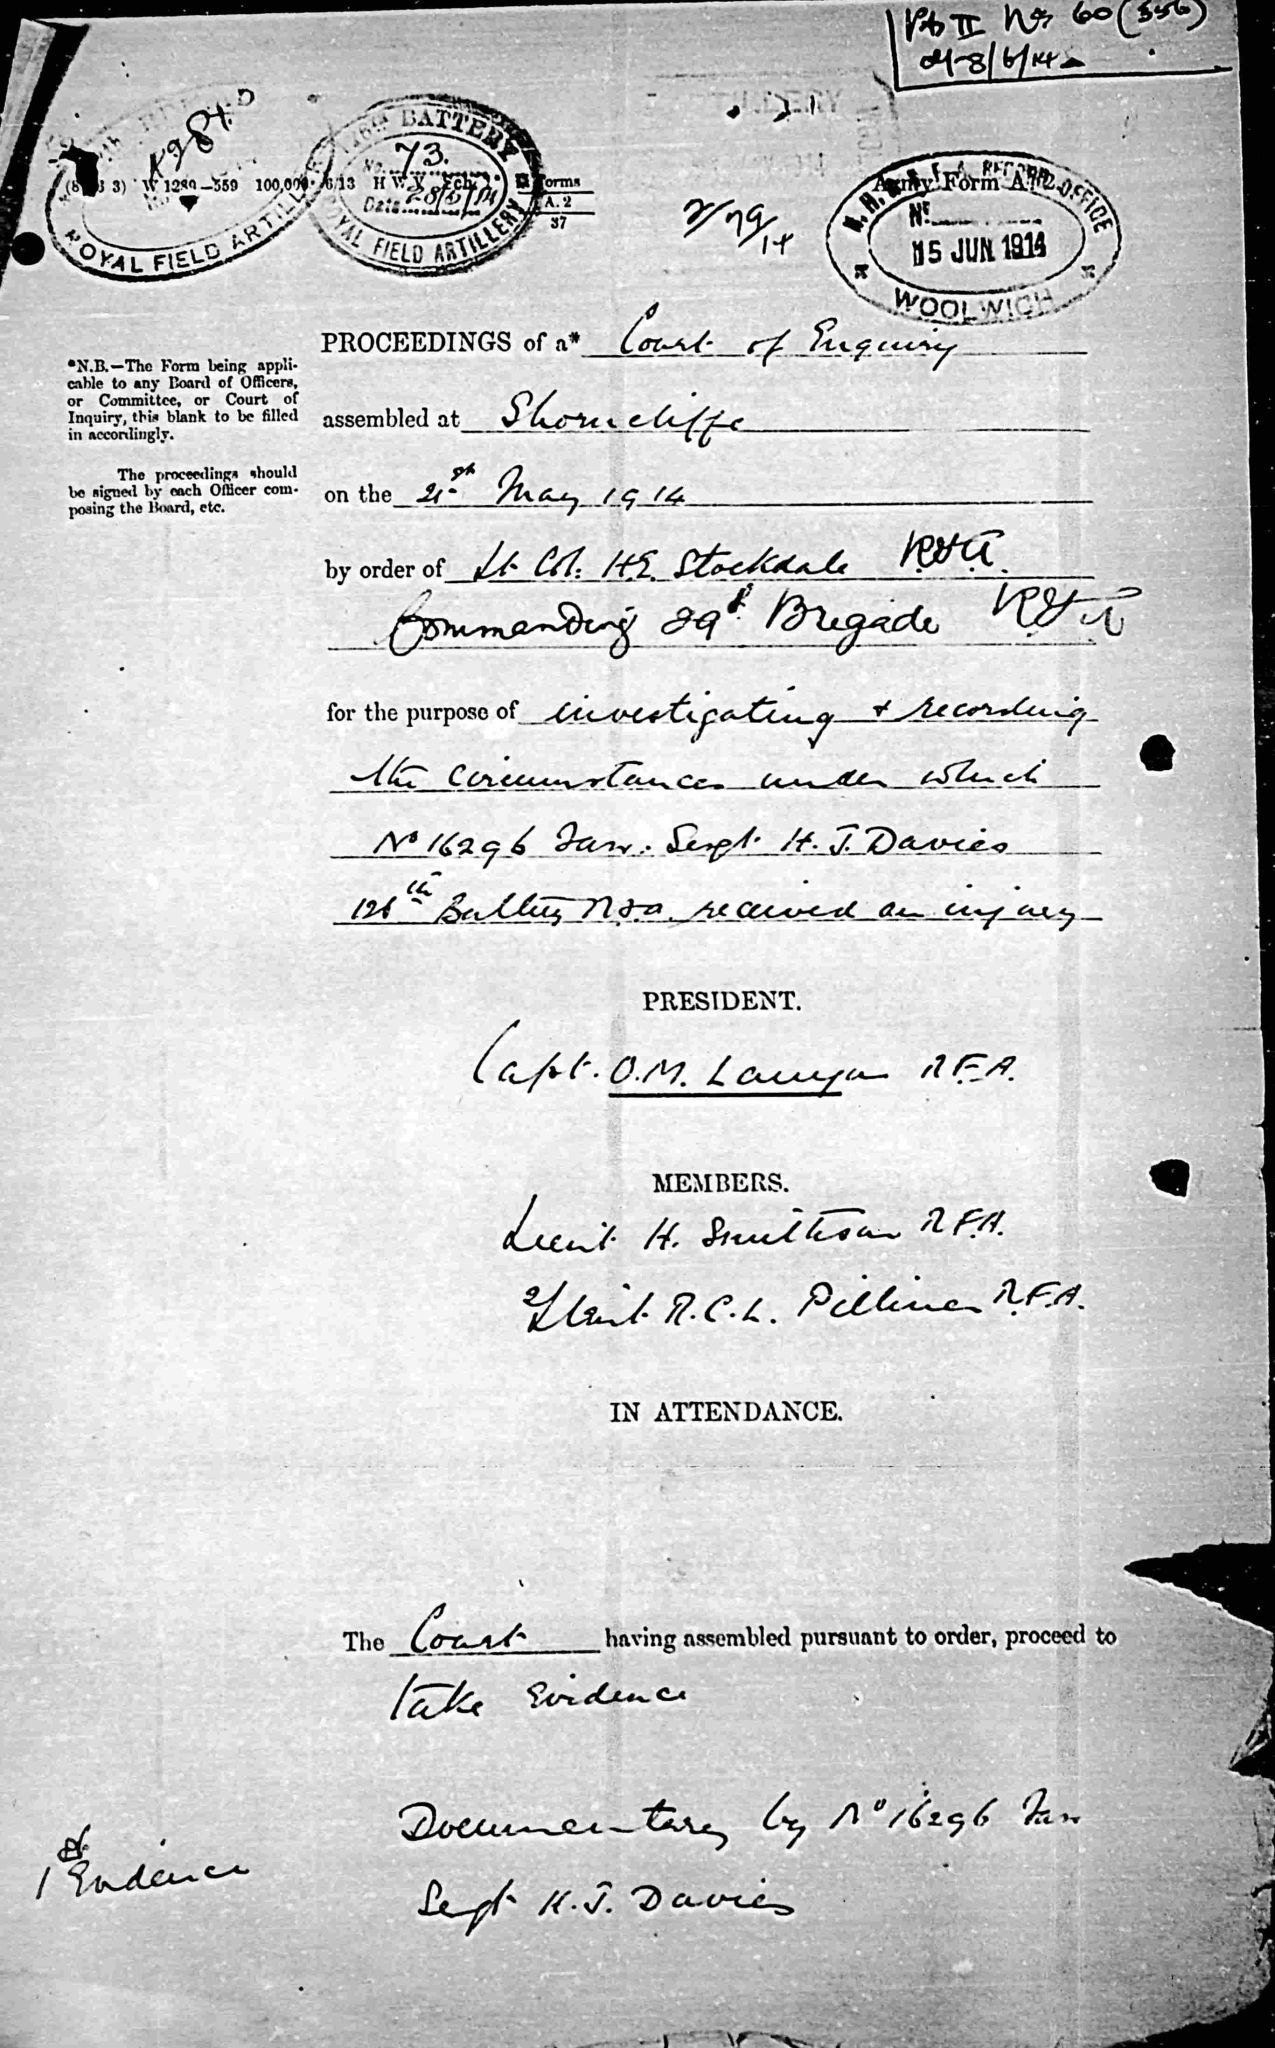 Pt II No 60 (556)
8/6/14
126th BATTERY
No. 73.
Date 28/5/14
ROYAL FIELD ARTILLERY
ROYAL FIELD ARTILLERY
3) W 1289—559 100,000 6/13 H W V
Forms
A. 2
37
2/79/14
Army Form A. 2
R.H. & R.F.A. RECORD OFFICE
No.
15 JUN 1914
WOOLWICH
PROCEEDINGS of a* Court of Enquiry
*N.B.—The Form being appli-
cable to any Board of Officers,
or Committee, or Court of
Inquiry, this blank to be filled
in accordingly.
assembled at Shorncliffe
The proceedings should
be signed by each Officer com-
posing the Board, etc.
on the 21st May 1914
by order of Lt. Col. H.E. Stockdale R.F.A.
Commanding 29th Brigade R.F.A
for the purpose of investigating & recording
the circumstances under which
No 16296 Farr. Sergt. H. J. Davies
126th Battery R.F.A. received an injury
PRESIDENT.
Capt. O.M. Lanyon R.F.A.
MEMBERS.
Lieut H. Smithson R.F.A.
2/Lieut. R.C.L. Pilliner R.F.A.
IN ATTENDANCE.
The Court having assembled pursuant to order, proceed to
take Evidence
1st Evidence
Documentary by No 16296 Farr
Sergt H. J. Davies